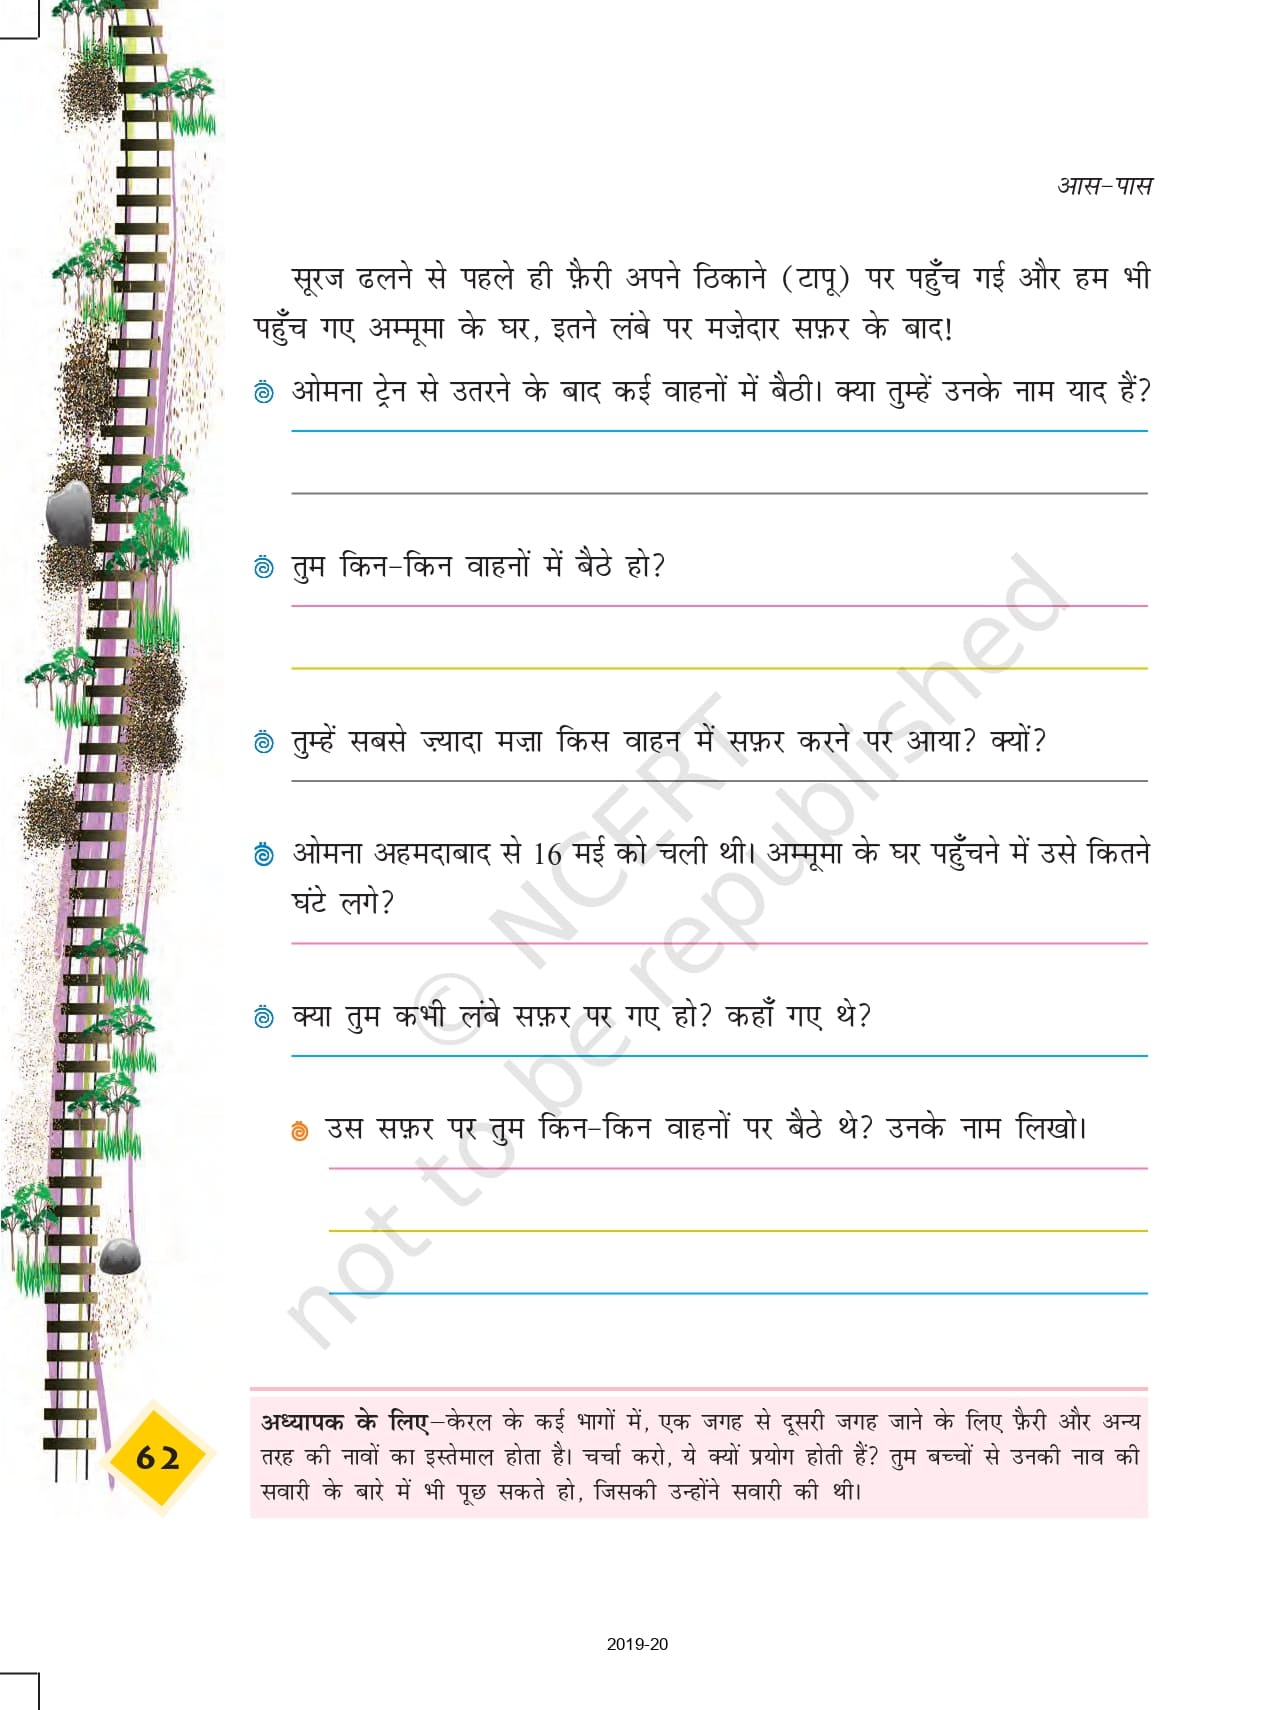 आस-पास
सूरज ढलने से पहले ही फ़ैरी अपने ठिकाने (टापू) पर पहुँच गई और हम भी
पहुँच गए अम्मूमा के घर, इतने लंबे पर मज़ेदार सफ़र के बाद!
ओमना ट्रेन से उतरने के बाद कई वाहनों में बैठी। क्या तुम्हें उनके नाम याद हैं?
तुम किन-किन वाहनों में बैठे हो?
तुम्हें सबसे ज़्यादा मज़ा किस वाहन में सफ़र करने पर आया? क्यों?
ओमना अहमदाबाद से 16 मई को चली थी। अम्मूमा के घर पहुँचने में उसे कितने
घंटे लगे?
क्या तुम कभी लंबे सफ़र पर गए हो? कहाँ गए थे?
उस सफ़र पर तुम किन-किन वाहनों पर बैठे थे? उनके नाम लिखो।
© NCERT
not to be republished
अध्यापक के लिए–केरल के कई भागों में, एक जगह से दूसरी जगह जाने के लिए फ़ैरी और अन्य
तरह की नावों का इस्तेमाल होता है। चर्चा करो, ये क्यों प्रयोग होती हैं? तुम बच्चों से उनकी नाव की
सवारी के बारे में भी पूछ सकते हो, जिसकी उन्होंने सवारी की थी।
62
2019-20